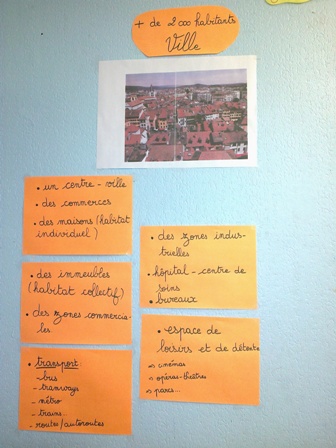 + de 2000 habitants
Ville
• un centre-ville
• des commerces
• des maisons (habitat
individuel)
• des immeubles
(habitat collectif)
• des zones commercia-
les
• transport:
- bus
- tramways
- métro
- trains...
- routes/autoroutes
• des zones indus-
trielles
• hôpital - centre de
soins
• bureaux
• espace de
loisirs et de détente
→ cinémas
→ opéras-théâtres
→ parcs...